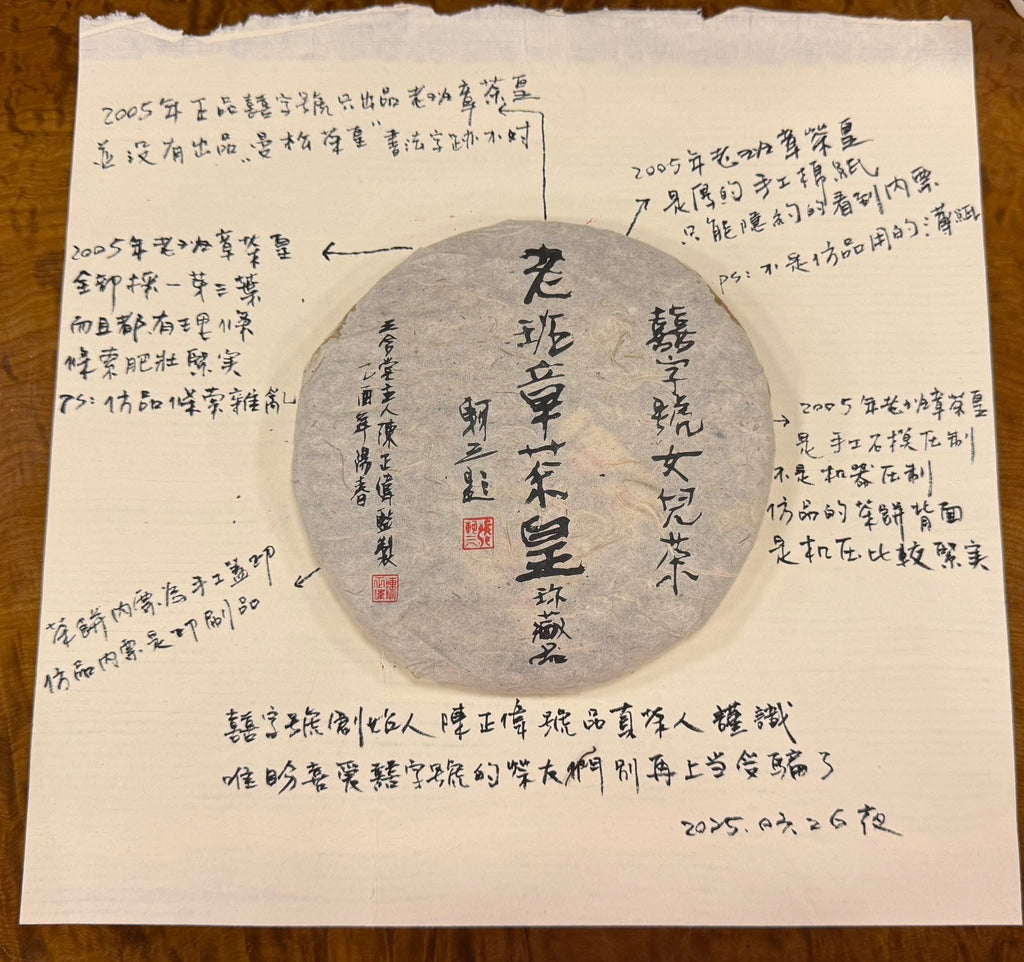 2005年正品囍字號只出品老班章茶皇
並没有出品"曼松茶皇"書法字跡不对
2005年老班章茶皇
是厚的手工棉紙
只能隱約的看到内票
PS:不是仿品用的薄紙
2005年老班章茶皇
全部採一芽三葉
而且都有理條
條索肥壯緊实
PS:仿品條索雜亂
囍字號女兒茶
老班章茶皇珍藏品
軻立題
五合堂主人陳正偉監製
乙酉年陽春
2005年老班章茶皇
是手工石模压制
不是机器压制
仿品的茶餅背面
是机压比較緊实
茶餅内票為手工蓋印
仿品内票是印刷品
囍字號創始人陳正偉號品真茶人謹識
唯盼喜爱囍字號的茶友們别再上当受騙了
2025.03.26夜